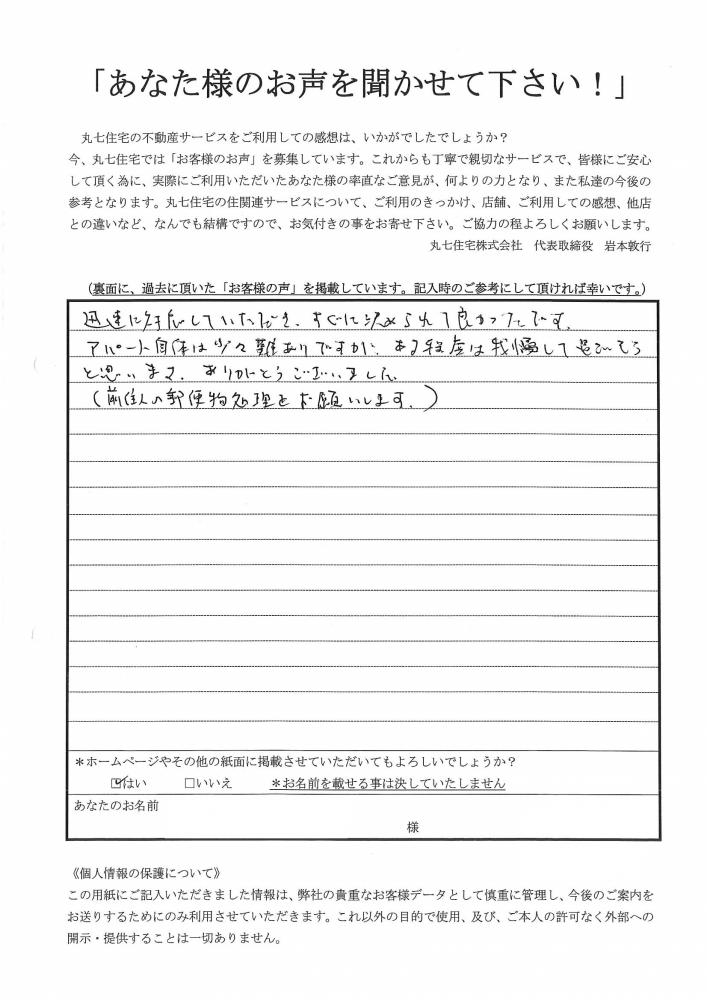 「あなた様のお声を聞かせて下さい！」
丸七住宅の不動産サービスをご利用しての感想は、いかがでしたでしょうか？
今、丸七住宅では「お客様のお声」を募集しています。これからも丁寧で親切なサービスで、皆様にご安心
して頂く為に、実際にご利用いただいたあなた様の率直なご意見が、何よりの力となり、また私達の今後の
参考となります。丸七住宅の住関連サービスについて、ご利用のきっかけ、店舗、ご利用しての感想、他店
との違いなど、なんでも結構ですので、お気付きの事をお寄せ下さい。ご協力の程よろしくお願いします。
丸七住宅株式会社　代表取締役　岩本敦行
（裏面に、過去に頂いた「お客様の声」を掲載しています。記入時のご参考にして頂ければ幸いです。）
迅速に対応していただき、すぐに決められて良かったです。
アパート自体は少々難ありですが、ある程度は我慢して過ごそう
と思います。ありがとうございました。
（前住人の郵便物処理をお願いします。）
＊ホームページやその他の紙面に掲載させていただいてもよろしいでしょうか？
☑はい　□いいえ　＊お名前を載せる事は決していたしません
あなたのお名前
様
《個人情報の保護について》
この用紙にご記入いただきました情報は、弊社の貴重なお客様データとして慎重に管理し、今後のご案内を
お送りするためにのみ利用させていただきます。これ以外の目的で使用、及び、ご本人の許可なく外部への
開示・提供することは一切ありません。